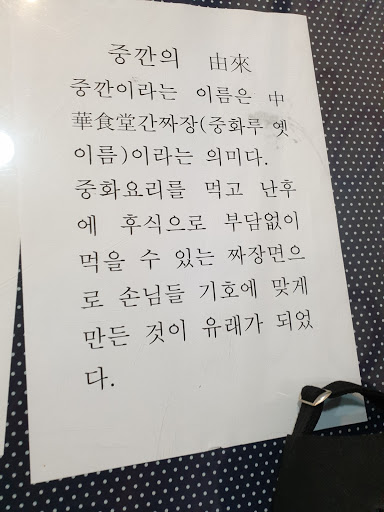 중깐의 由來
중깐이라는 이름은 中
華食堂간짜장(중화루 옛
이름)이라는 의미다.
중화요리를 먹고 난후
에 후식으로 부담없이
먹을 수 있는 짜장면으
로 손님들 기호에 맞게
만든 것이 유래가 되었
다.